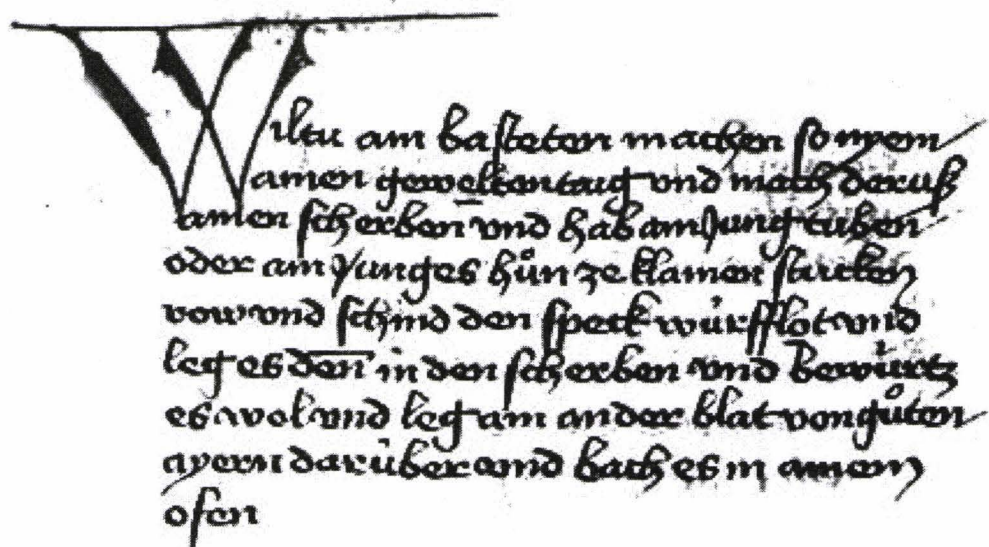 Wiltu ain basteten machen so nyem
ainen gewelten taig vnd mach deruß
ainen scherben vnd hab ain Jung tuben
oder ain Junges hůn ze klainen stucken
row vnd schnid den speck würfflot vnd
leg es den in den scherben vnd bewürtz
es wol vnd leg ain ander blat von gůten
ayern darüber vnd bach es in ainem
ofen